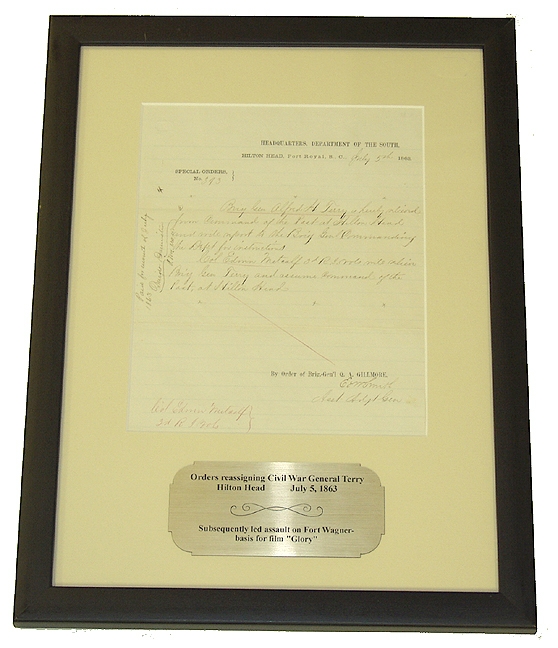 HEADQUARTERS, DEPARTMENT OF THE SOUTH,
HILTON HEAD, Port Royal, S. C., July 5th 1863
SPECIAL ORDERS,
No.
Brig Gen Alfred H. Terry is hereby relieved
from Command of the Post at Hilton Head
and will report to the Brig Genl Commanding
the Dept for instructions
Col Edwin Metcalf 3d R. I. Vols will relieve
Brig Gen Terry and assume command of the
Post at Hilton Head.
By Order of Brig.-Gen'l Q. A. GILLMORE.
Ed W Smith
Asst Adjt Gen
Col Edwin Metcalf
3d R. I. Vols
Orders reassigning Civil War General Terry
Hilton Head July 5, 1863
Subsequently led assault on Fort Wagner-
basis for film "Glory"